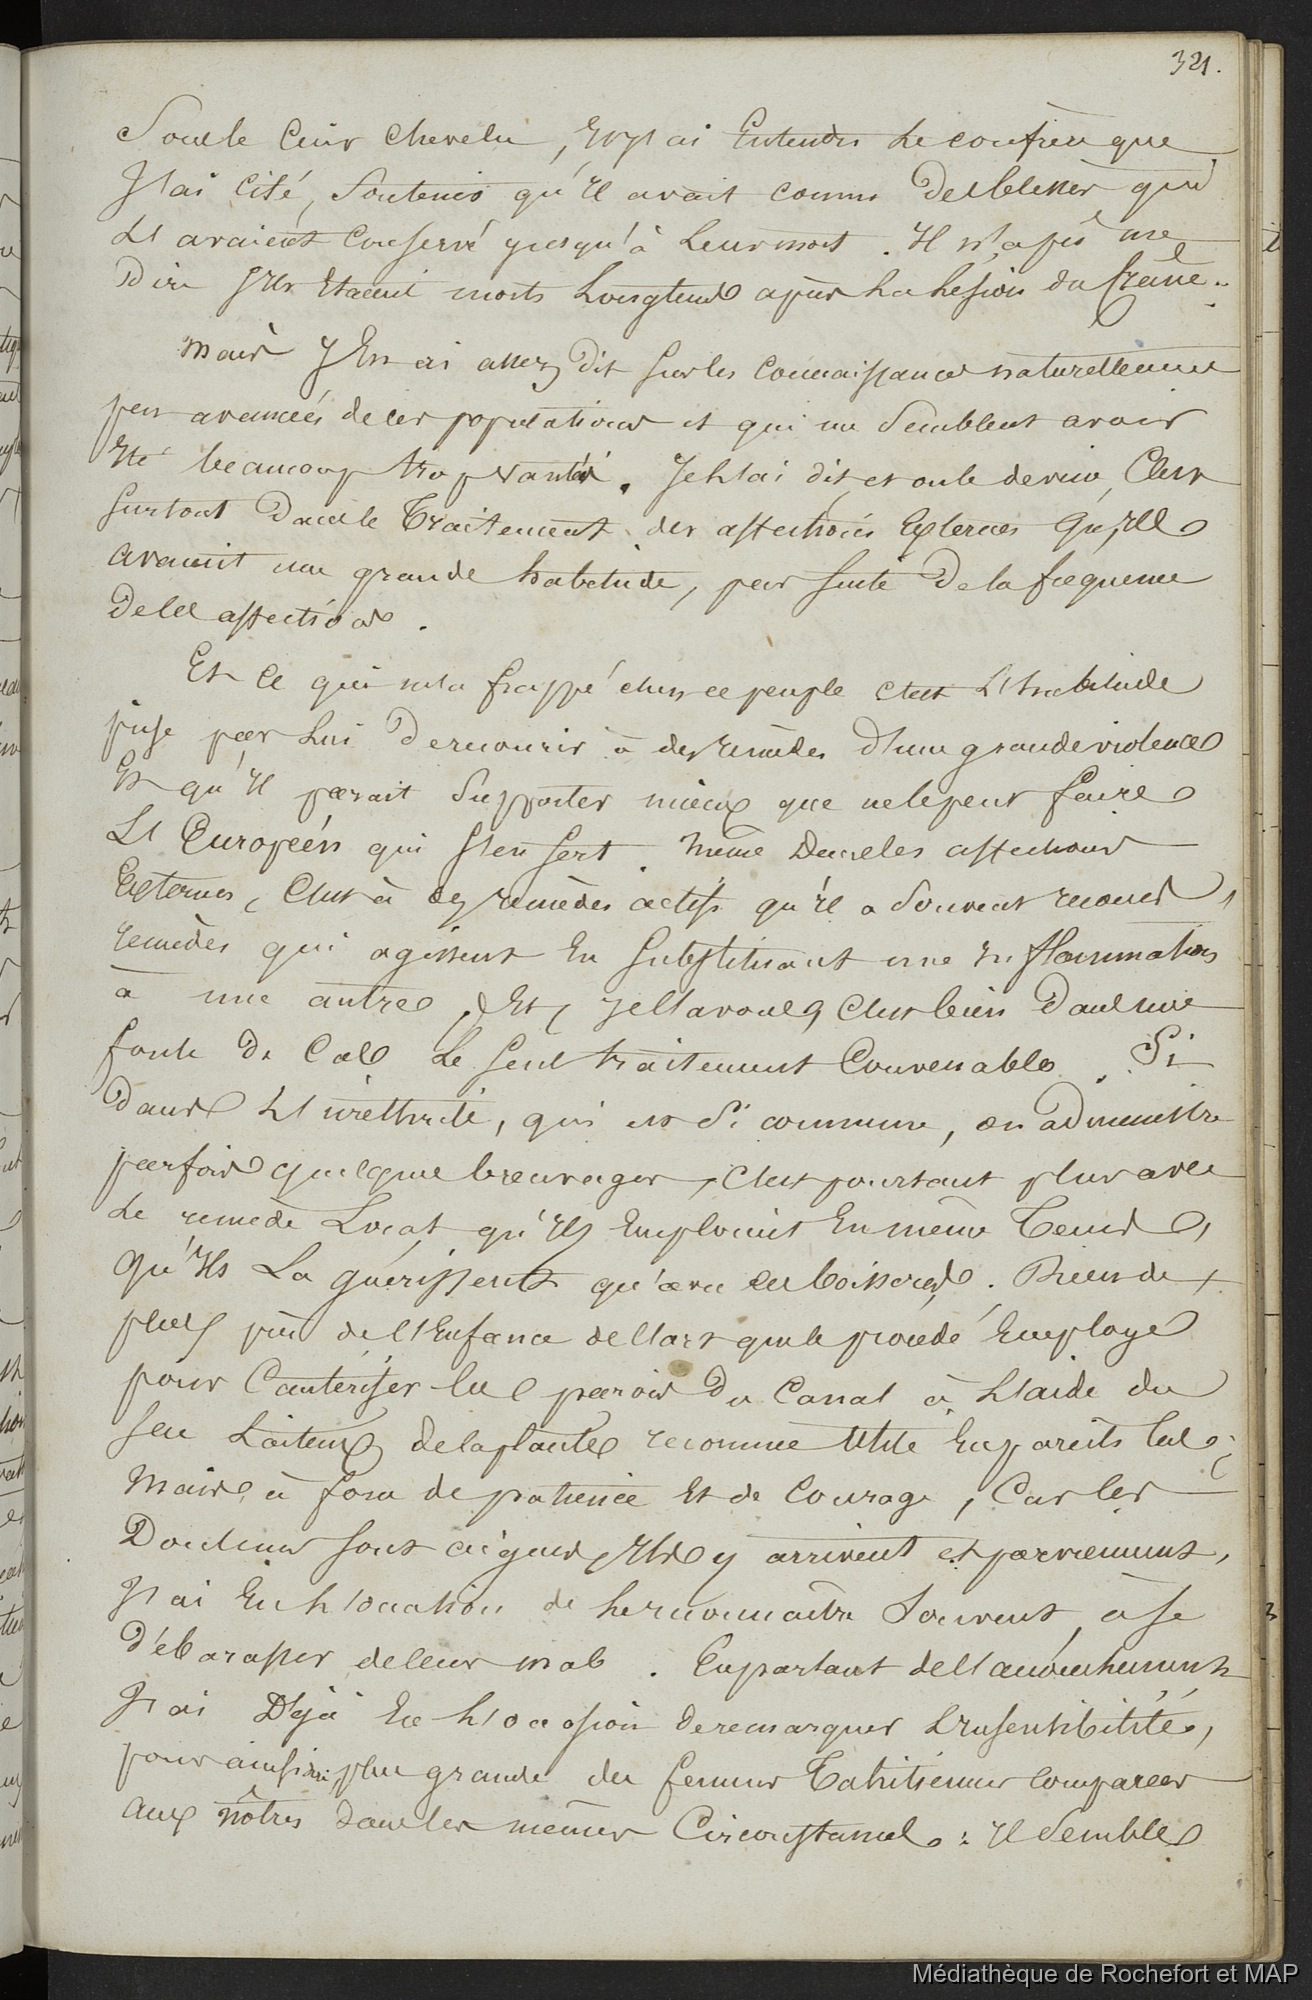 321.
Sous le cuir chevelu, et j'ai entendu le confrère que
j'ai cité, soutenir qu'il avait connu des blessés qui
l'avaient conservé jusqu'à leur mort. Il n'a pu me
dire s'ils étaient morts longtems après la lésion du crâne.
Mais j'en ai assez dit sur les connaissances naturellement
peu avancées de ces populations et qui me semblent avoir
été beaucoup trop vantées. Je l'ai dit, et on le devine, c'est
surtout dans le traitement des affections externes qu'ils
avaient une grande habitude, par suite de la fréquence
de ces affections.
Et ce qui m'a frappé chez ce peuple c'est l'habitude
prise par lui de recourir à des remèdes d'une grande violence
et qu'il parait supporter mieux que ne le peut faire
l'Européen qui s'en sert. Même dans les affections
externes, c'est à des remèdes actifs qu'il a souvent recours,
remèdes qui agissent en substituant une inflammation
à une autre, et, je l'avoue, c'est bien dans une
foule de cas le seul traitement convenable. Si
dans l'uréthrite, qui est si commune, on administre
parfois quelque breuvages, c'est pourtant plus avec
le remède local qu'ils emploient en même tems,
qu'ils la guérissent qu'avec ces boissons. Rien de
plus près de l'enfance de l'art que le procédé employé
pour cautériser les parois du canal à l'aide du
suc laiteux de la plante reconnue utile en pareils cas;
mais à force de patience et de courage, car les
douleurs sont aigues, ils y arrivent et parviennent,
j'ai eu l'occasion de le reconnaître souvent, à se
débarasser de leur mal. En parlant de l'accouchement
j'ai déjà eu l'occasion de remarquer l'insensibilité,
pour ainsi dire, plus grande des femmes Tahitiennes comparées
aux nôtres dans les mêmes circonstances: il semble
Médiathèque de Rochefort et MAP